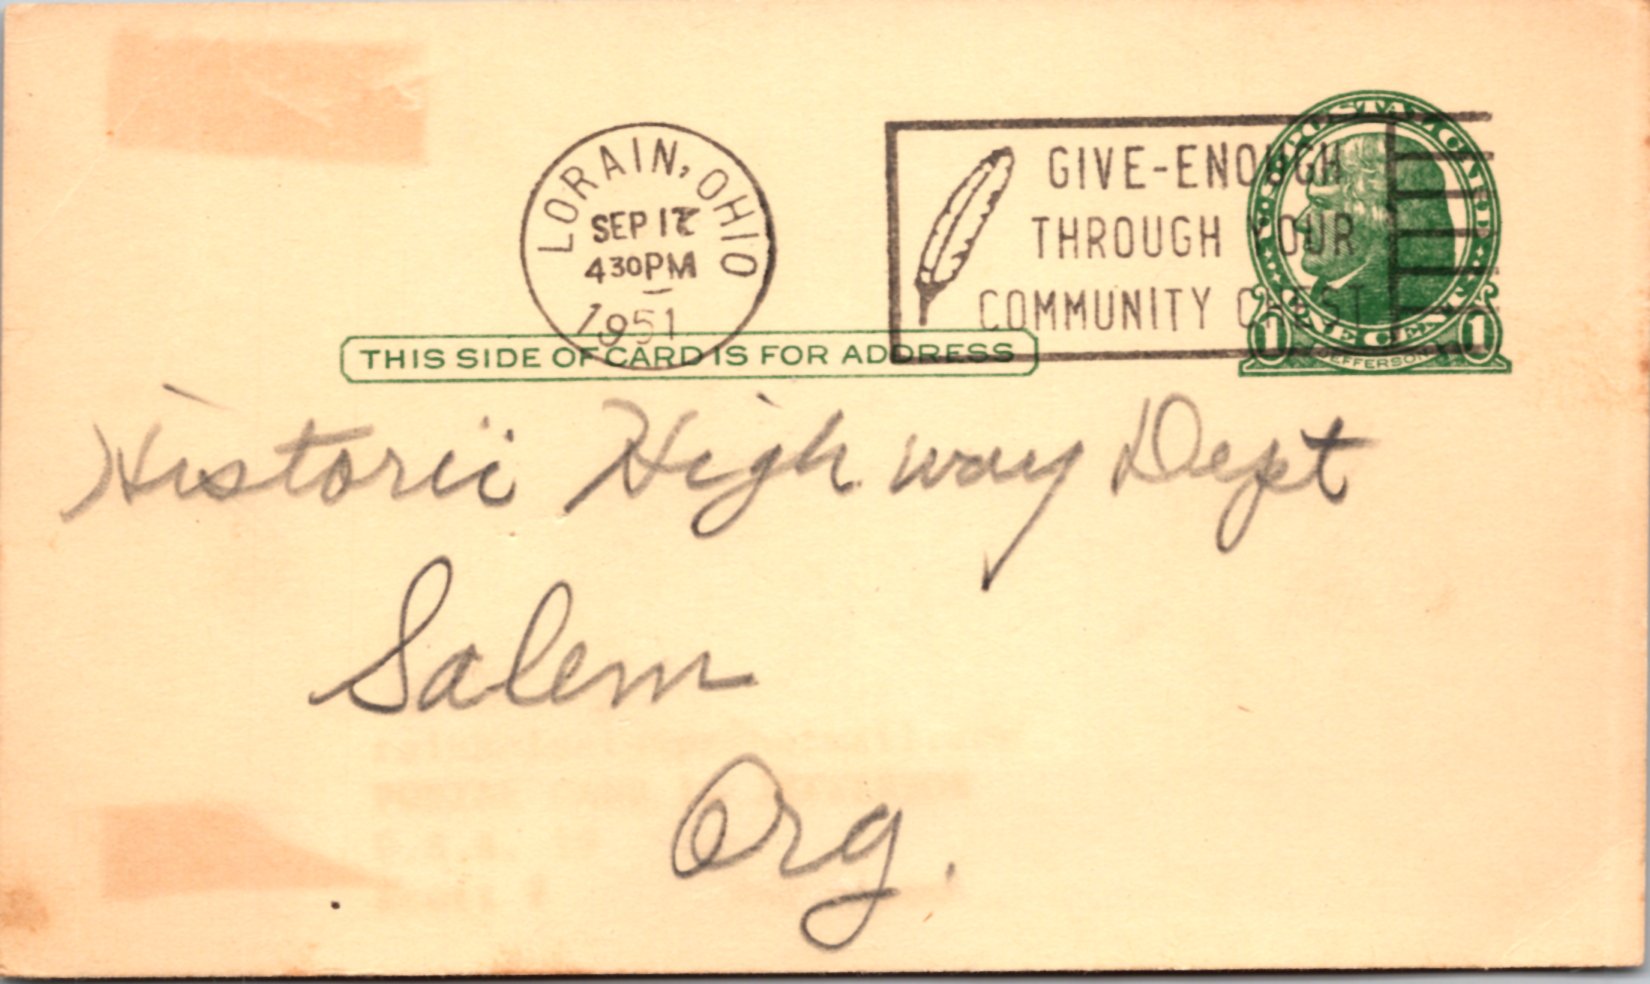 LORAIN, OHIO
SEP 17
430PM
1951
GIVE-ENOUGH
THROUGH YOUR
COMMUNITY CHEST
U.S. POSTAL CARD
ONE CENT
1 JEFFERSON 1
THIS SIDE OF CARD IS FOR ADDRESS
Historic Highway Dept
Salem
Org.